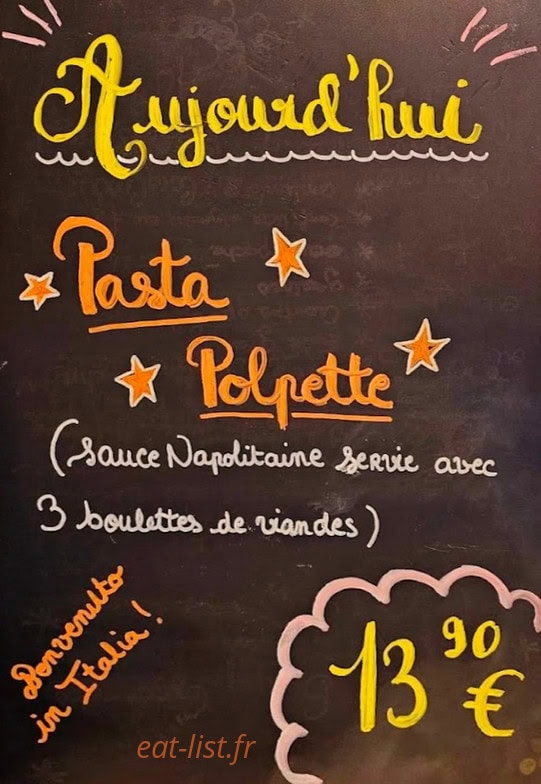 Aujourd'hui
Pasta
Polpette
(sauce Napolitaine servie avec
3 boulettes de viandes)
Bonvenutto
in Italia!
13,90
€
eat-list.fr